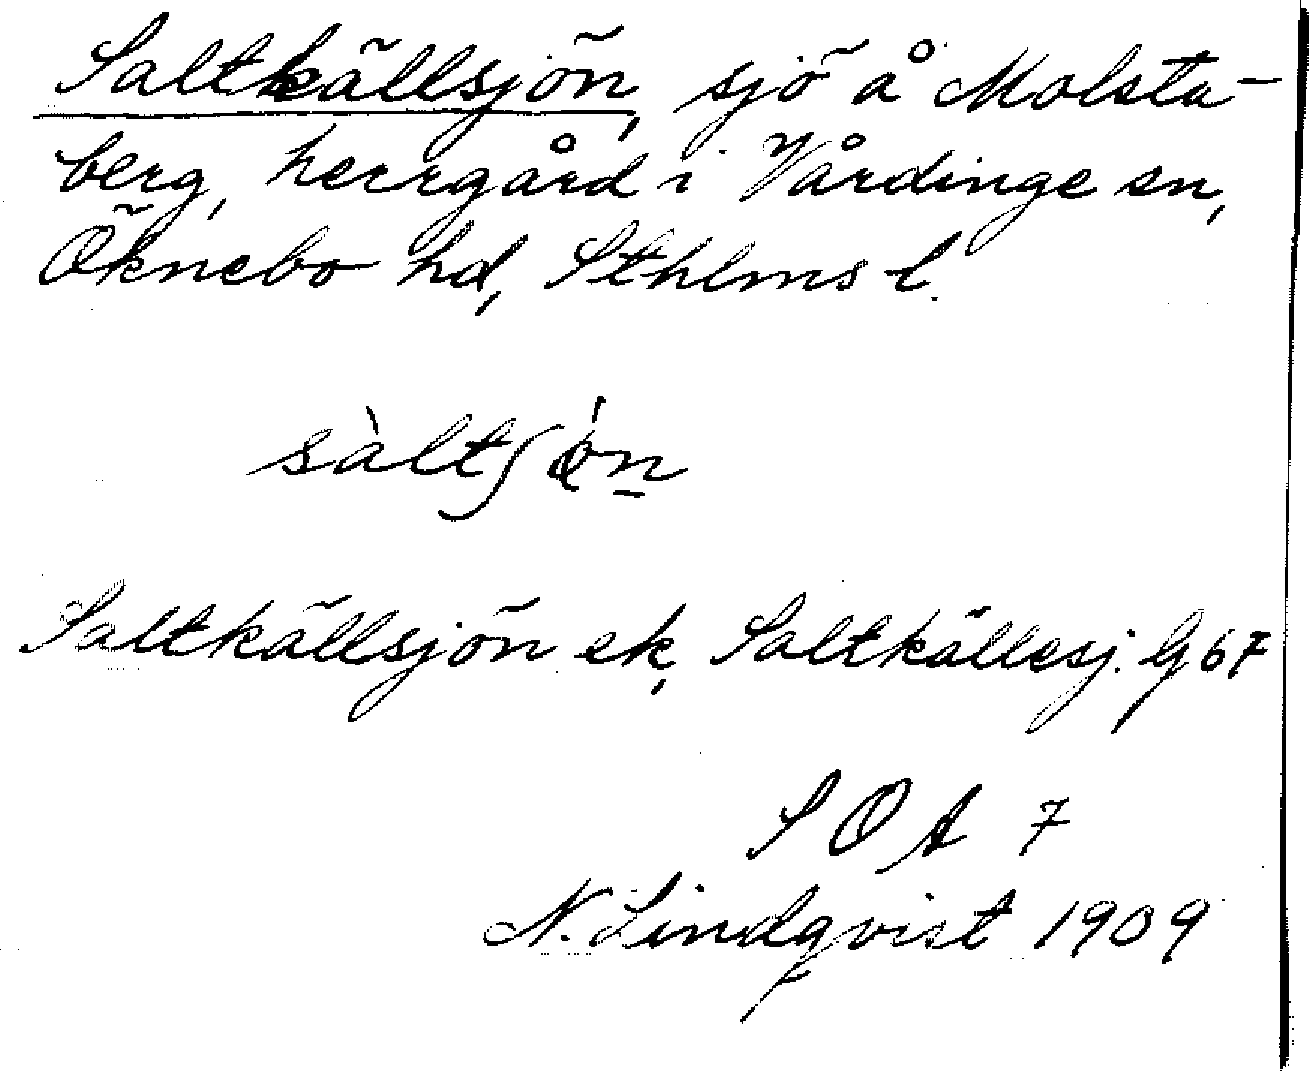 Saltkällsjön, sjö å Molsta-
berg, herrgård i Vårdinge sn,
Öknebo hd, Sthlms l.
sàltʃǿn
Saltkällsjön ek, Saltkällesj. G 67
S O A 7
N. Lindqvist 1909